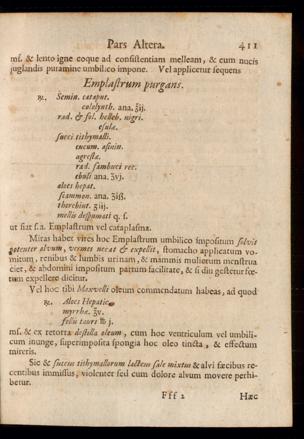 Pars Altera. 411
mſ. & lento igne coque ad conſiſtentiam melleam, & cum nucis
juglandis putamine umbilico impone. Vel applicetur ſequens
Emplaſtrum purgans.
℞. Semin. cataput.
colocynth. ana. ʒij.
rad. & fol. helleb. nigri.
eſulæ.
ſucci tithymalli.
cucum. aſinin.
agreſtæ.
rad. ſambuci rec.
ebuli ana. ʒvj.
aloes hepat.
ſcammon. ana. ʒiß.
therebint. ʒiij.
mellis deſpumati q. ſ.
ut fiat ſ.a. Emplaſtrum vel cataplaſma.
Miras habet vires hoc Emplaſtrum umbilico impoſitum ſolvit
potenter alvum, vermes necat & expellit, ſtomacho applicatum vo-
mitum, renibus & lumbis urinam, & mammis muliorum menſtrua
ciet, & abdomini impoſitum partum facilitate, & ſi diu geſtetur fœ-
tum expellere dicitur.
Vel hoc tibi Maxvelli oleum commendatum habeas, ad quod
℞. Aloes Hepatic.
myrrhæ. ʒv.
fellis tauri ℔ j.
mſ. & ex retorta deſtilla oleum, cum hoc ventriculum vel umbili-
cum inunge, ſuperimpoſita ſpongia hoc oleo tincta, & effectum
mireris.
Sic & ſuccus tithymallorum lactens ſale mixtus & alvi fæcibus re-
centibus immiſſus, violenter ſed cum dolore alvum movere perhi-
betur.
Fff 2 Hæc